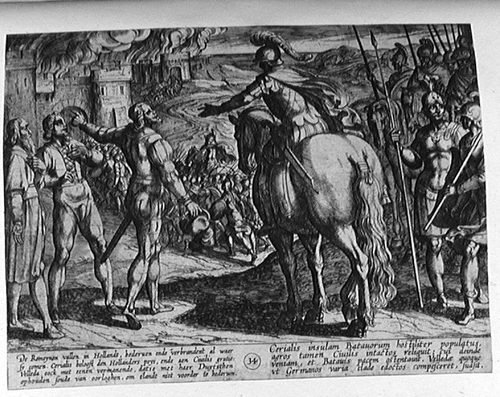 De Romeynen vallen in Hollandt, bederven ende verbrandent al waer
sy comen. Cerialis belooft den Hollanders pays ende aen Civilis gratie:
Velleda oock met eenen vermanende, datse met haer Duytschen
ophouden soude van oorloghen, om tlandt niet voorder te bederven.
34
Cerialis insulam Batavorum hostiliter populatus,
agros tamen Civilis intactos reliquit; cui deinde
veniam, et Batavis pacem ostentavit. Velledæ quoque
ut Germanos varia clade edoctos compesceret, suasit.